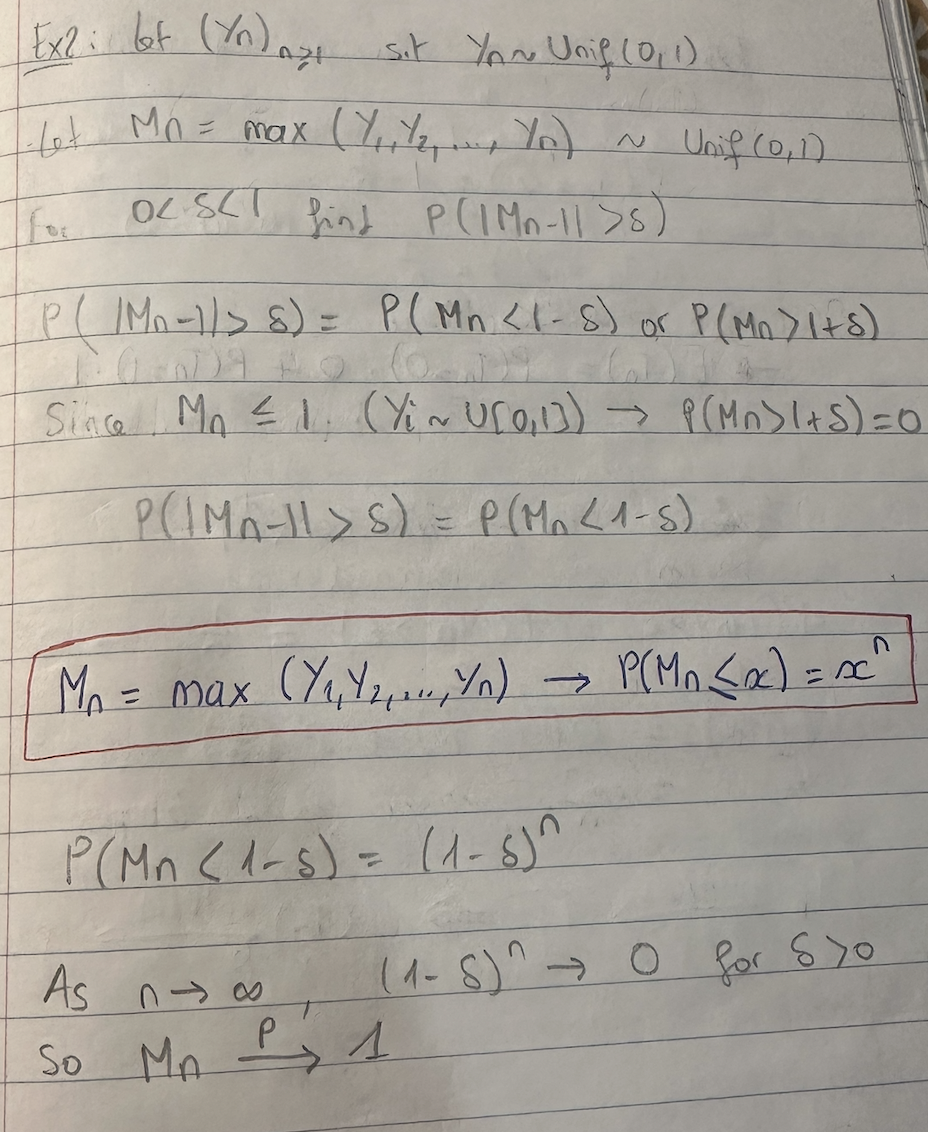 Ex2: let (Yn)n≥1 s.t Yn ~ Unif(0,1)
Let Mn = max (Y1, Y2, ..., Yn) ~ Unif(0,1)
For 0<δ<1 find P(|Mn-1|>δ)
P(|Mn-1|>δ) = P(Mn<1-δ) or P(Mn>1+δ)
Since Mn ≤ 1 (Yi ~ U[0,1]) → P(Mn>1+δ)=0
P(|Mn-1|>δ) = P(Mn<1-δ)
Mn = max (Y1, Y2, ..., Yn) → P(Mn≤x) = x^n
P(Mn < 1-δ) = (1-δ)^n
As n→∞, (1-δ)^n → 0 for δ>0
So Mn —P→ 1